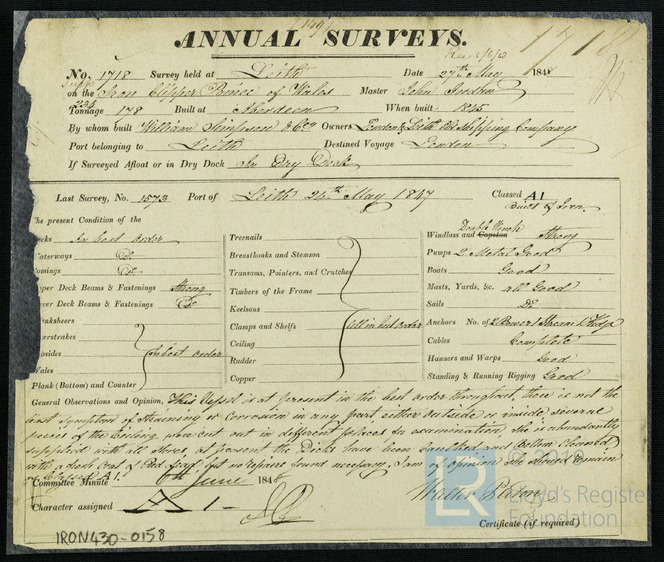 ANNUAL SURVEYS.
No. 1718 Survey held at Leith Date 27th May 1848
on the Iron Clipper Prince of Wales Master John
Tonnage 148 Built at Aberdeen When built 1845
By whom built William Simpson & Co Owners London & Leith Shipping Company
Port belonging to Leith Destined Voyage London
If Surveyed Afloat or in Dry Dock In Dry Dock
Last Survey, No. 1573 Port of Leith 24th May 1847 Classed A1
Built of Iron
The present Condition of the
Decks In best order
Waterways Do
Comings Do
Upper Deck Beams & Fastenings Strong
Lower Deck Beams & Fastenings Do
Planksheers
Waterstrakes
Topsides In best order
Wales
Plank (Bottom) and Counter
Treenails
Breasthooks and Stemson
Transoms, Pointers, and Crutches
Timbers of the Frame
Keelsons
Clamps and Shelfs all in best order
Ceiling
Rudder
Copper
Double Winch
Windlass and Capstan Strong
Pumps 2 Metal Good
Boats Good
Masts, Yards, &c. all Good
Sails Do
Anchors No. of 2 Bower 1 Stream 1 Kedge
Cables Complete
Hawsers and Warps Good
Standing & Running Rigging Good
General Observations and Opinion, This Vessel is at present in the best order throughout, there is not the
least Symptom of Straining or Corrosion in any part either outside or inside, several
pieces of the Ceiling were cut out in different places for examination, she is abundantly
supplied with all Stores, at present the Decks have been caulked and bottom cleaned
with a fresh Coat of Red lead, but no repairs found necessary, I am of opinion she should remain
as Classed A1.
Committee Minute 6th June 1848
Character assigned A1
Walter Paton
Certificate (if required)
IRON430-0158
© 2019
LR
Lloyd's Register
Foundation